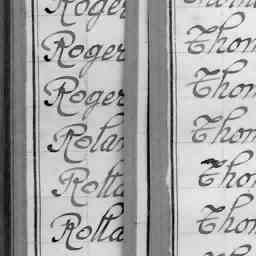 Roger
Roger
Roger
Rolan
Rolla
Rolla
Thom
Thom
Thom
Thom
Thom